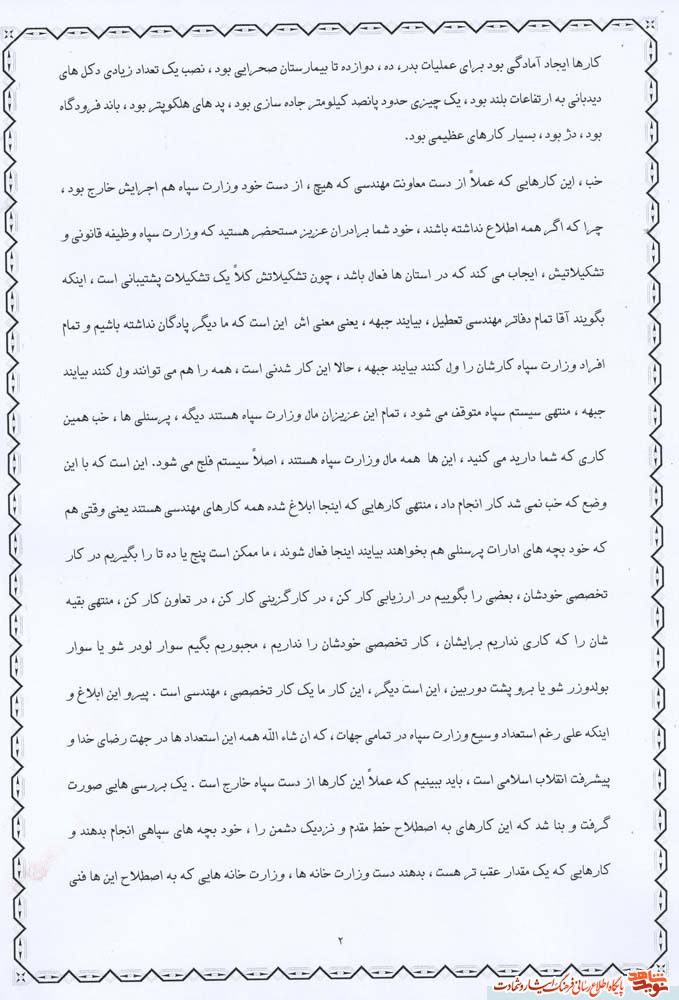 کارها ایجاد آمادگی بود برای عملیات بدر، ده ، دوازده تا بیمارستان صحرایی بود ، نصب یک تعداد زیادی دکل های
دیدبانی به ارتفاعات بلند بود ، یک چیزی حدود پانصد کیلومتر جاده سازی بود ، پد های هلکوپتر بود ، باند فرودگاه
بود ، دژ بود ، بسیار کارهای عظیمی بود.
خب ، این کارهایی که عملاً از دست معاونت مهندسی که هیچ ، از دست خود وزارت سپاه هم اجرایش خارج بود ،
چرا که اگر همه اطلاع نداشته باشند ، خود شما برادران عزیز مستحضر هستید که وزارت سپاه وظیفه قانونی و
تشکیلاتیش ، ایجاب می کند که در استان ها فعال باشد ، چون تشکیلاتش کلاً یک تشکیلات پشتیبانی است ، اینکه
بگویند آقا تمام دفاتر مهندسی تعطیل ، بیایند جبهه ، یعنی معنی اش این است که ما دیگر پادگان نداشته باشیم و تمام
افراد وزارت سپاه کارشان را ول کنند بیایند جبهه ، حالا این کار شدنی است ، همه را هم می توانند ول کنند بیایند
جبهه ، منتهی سیستم سپاه متوقف می شود ، تمام این عزیزان مال وزارت سپاه هستند دیگه ، پرسنلی ها ، خب همین
کاری که شما دارید می کنید ، این ها همه مال وزارت سپاه هستند ، اصلاً سیستم فلج می شود. این است که با این
وضع که خب نمی شد کار انجام داد ، منتهی کارهایی که اینجا ابلاغ شده همه کارهای مهندسی هستند یعنی وقتی هم
که خود بچه های ادارات پرسنلی هم بخواهند بیایند اینجا فعال شوند ، ما ممکن است پنج یا ده تا را بگیریم در کار
تخصصی خودشان ، بعضی را بگوییم در ارزیابی کار کن ، در کارگزینی کار کن ، در تعاون کار کن ، منتهی بقیه
شان را که کاری نداریم برایشان ، کار تخصصی خودشان را نداریم ، مجبوریم بگیم سوار لودر شو یا سوار
بولدوزر شو یا برو پشت دوربین ، این است دیگر ، این کار ما یک کار تخصصی ، مهندسی است . پیرو این ابلاغ و
اینکه علی رغم استعداد وسیع وزارت سپاه در تمامی جهات ، که ان شاء الله همه این استعداد ها در جهت رضای خدا و
پیشرفت انقلاب اسلامی است ، باید ببینیم که عملاً این کارها از دست سپاه خارج است . یک بررسی هایی صورت
گرفت و بنا شد که این کارهای به اصطلاح خط مقدم و نزدیک دشمن را ، خود بچه های سپاهی انجام بدهند و
کارهایی که یک مقدار عقب تر هست ، بدهند دست وزارت خانه ها ، وزارت خانه هایی که به اصطلاح این ها فنی
۲
نوید شاهد
پایگاه اطلاع رسانی فرهنگ ایثار و شهادت